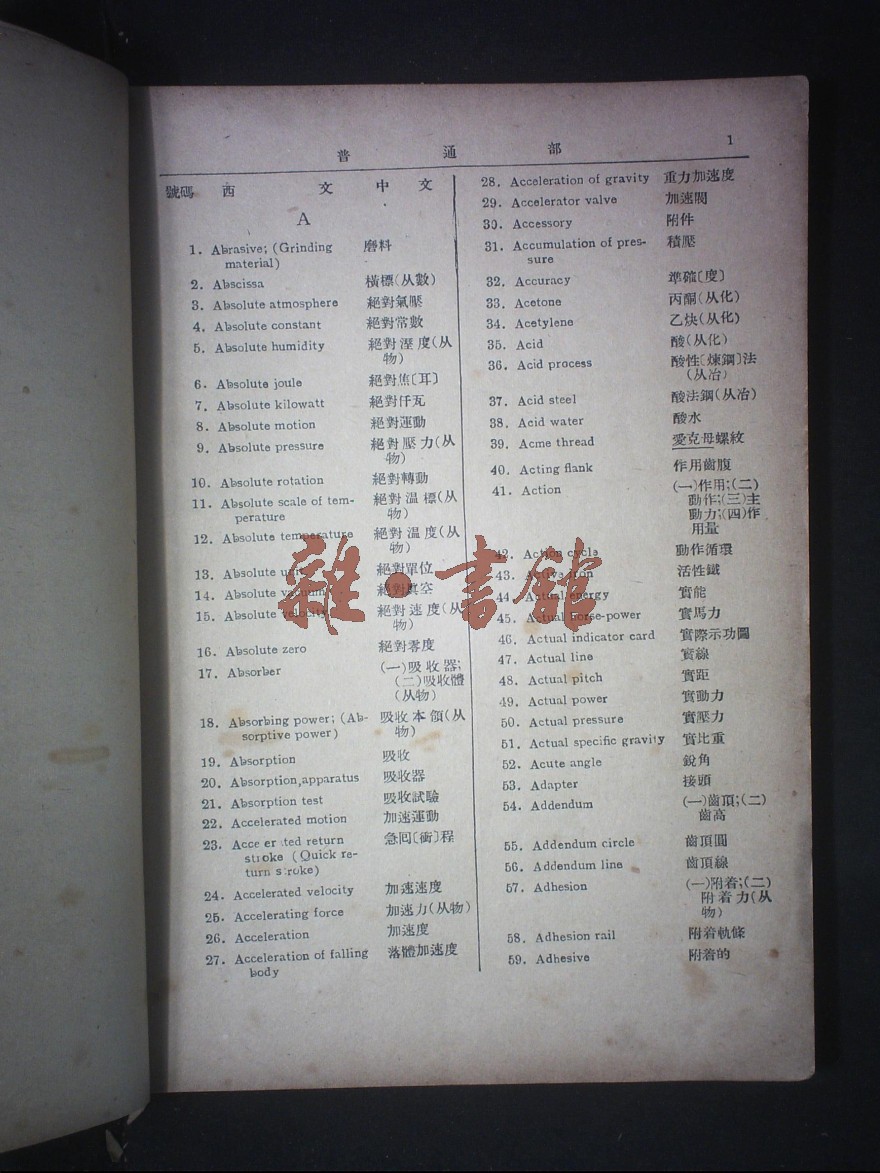 普 通 部 1
號碼 西 文 中 文
A
1. Abrasive; (Grinding 磨料
material)
2. Abscissa 橫標(从數)
3. Absolute atmosphere 絕對氣壓
4. Absolute constant 絕對常數
5. Absolute humidity 絕對溼度(从
物)
6. Absolute joule 絕對焦〔耳〕
7. Absolute kilowatt 絕對仟瓦
8. Absolute motion 絕對運動
9. Absolute pressure 絕對壓力(从
物)
10. Absolute rotation 絕對轉動
11. Absolute scale of tem- 絕對溫標(从
perature 物)
12. Absolute temperature 絕對溫度(从
物)
13. Absolute unit 絕對單位
14. Absolute vacuum 絕對眞空
15. Absolute velocity 絕對速度(从
物)
16. Absolute zero 絕對零度
17. Absorber (一)吸收器;
(二)吸收體
(从物)
18. Absorbing power; (Ab- 吸收本領(从
sorptive power) 物)
19. Absorption 吸收
20. Absorption,apparatus 吸收器
21. Absorption test 吸收試驗
22. Accelerated motion 加速運動
23. Acce er ted return 急囘〔衝〕程
stroke (Quick re-
turn stroke)
24. Accelerated velocity 加速速度
25. Accelerating force 加速力(从物)
26. Acceleration 加速度
27. Acceleration of falling 落體加速度
body
28. Acceleration of gravity 重力加速度
29. Accelerator valve 加速閥
30. Accessory 附件
31. Accumulation of pres- 積壓
sure
32. Accuracy 準確〔度〕
33. Acetone 丙酮(从化)
34. Acetylene 乙炔(从化)
35. Acid 酸(从化)
36. Acid process 酸性〔煉鋼〕法
(从冶)
37. Acid steel 酸法鋼(从冶)
38. Acid water 酸水
39. Acme thread 愛克母螺紋
40. Acting flank 作用齒腹
41. Action (一)作用;(二)
動作;(三)主
動力;(四)作
用量
42. Action cycle 動作循環
43. Active iron 活性鐵
44. Actual energy 實能
45. Actual horse-power 實馬力
46. Actual indicator card 實際示功圖
47. Actual line 實線
48. Actual pitch 實距
49. Actual power 實動力
50. Actual pressure 實壓力
51. Actual specific gravity 實比重
52. Acute angle 銳角
53. Adapter 接頭
54. Addendum (一)齒頂;(二)
齒高
55. Addendum circle 齒頂圓
56. Addendum line 齒頂線
57. Adhesion (一)附着;(二)
附着力(从
物)
58. Adhesion rail 附着軌條
59. Adhesive 附着的
雜·書館